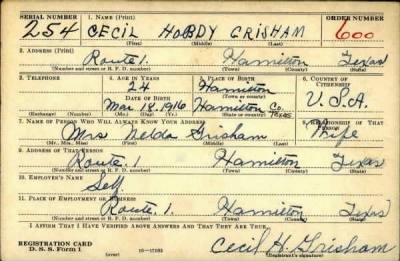 SERIAL NUMBER 1. NAME (Print) ORDER NUMBER
254 CECIL HOBDY GRISHAM 600
(First) (Middle) (Last)
2. ADDRESS (Print)
Route 1. Hamilton Texas
(Number and street or R. F. D. number) (Town) (County) (State)
3. TELEPHONE 4. AGE IN YEARS 5. PLACE OF BIRTH 6. COUNTRY OF CITIZENSHIP
24 Hamilton
(Town or county)
DATE OF BIRTH
Mar. 18, 1916 Hamilton Co. Texas U.S.A.
(Exchange) (Number) (Mo.) (Day) (Yr.) (State or country)
7. NAME OF PERSON WHO WILL ALWAYS KNOW YOUR ADDRESS 8. RELATIONSHIP OF THAT PERSON
Mrs Nelda Grisham Wife
(Mr., Mrs., Miss) (First) (Middle) (Last)
9. ADDRESS OF THAT PERSON
Route. 1. Hamilton Texas
(Number and street or R. F. D. number) (Town) (County) (State)
10. EMPLOYER'S NAME
Self
11. PLACE OF EMPLOYMENT OR BUSINESS
Route. 1. Hamilton Texas
(Number and street or R. F. D. number) (Town) (County) (State)
I AFFIRM THAT I HAVE VERIFIED ABOVE ANSWERS AND THAT THEY ARE TRUE.
REGISTRATION CARD
D. S. S. Form 1 (over) Cecil H. Grisham
(Registrant's signature)